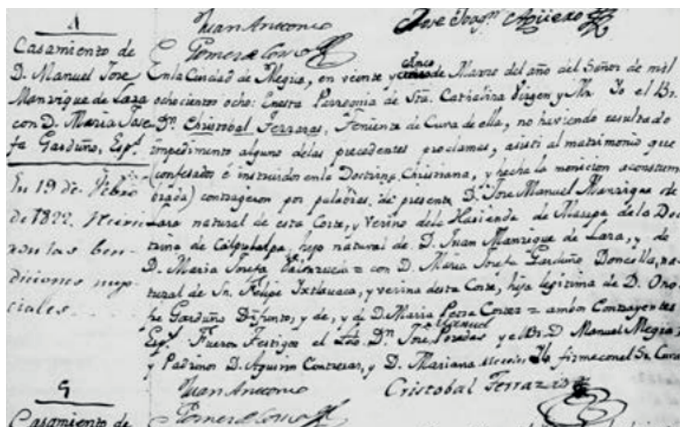 A
Casamiento de
D. Manuel Jose
Manrique de Lara
con D. Maria Jose
fa Garduño, Esp.s
En 19 de Febro
de 1822.
ron las ben
diciones nup
ciales
Juan Antonio
Jose Joaqn Agüero
En la Ciudad de Megico, en veinte y cinco de Marzo del año del Señor de mil
ochocientos ocho: En esta Parroquia de Sta. Catharina Virgen y Mr. Yo el Br.
Dn. Christobal Terraras, Teniente de Cura de ella, no haviendo resultado
impedimento alguno de las precedentes proclamas, asisti al matrimonio que
(confesados é instruidos en la Doctrina Christiana, y hecha la monicion acostum
brada) contrageron por palabras de presente D. Jose Manuel Manrique de
Lara natural de esta Corte, y Vecino de la Hacienda de de la Doc
trina de Calpulalpa, hijo natural de D. Juan Manrique de Lara, y de
D. Maria Josefa con D. Maria Josefa Garduño Doncella, na
tural de Sn. Felipe Ixtlauaca, y vecina desta Corte, hija legitima de D. Ono
fre Garduño Difunto, y de, y de D. Maria Petra Cortes ambos Contrayentes
Esps. Fueron Testigos el Dn. Jose Manuel y el Br. D. Manuel Megia
y Padrinos D. Aquino Contreras, y D. Mariana lo firmó con el Sr. Cura
Juan Antonio
Cristobal Terrazas
G
Casamiento de